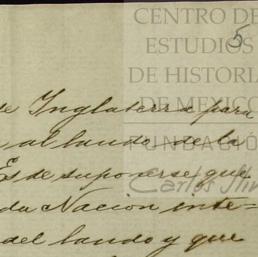 CENTRO DE
ESTUDIOS
DE HISTORIA
DE MEXICO
FUNDACIÓ
Carlos Sli
5
de Inglaterra para
al laudo de la
Es de suponerse que
da Nacion inte=
del laudo y que